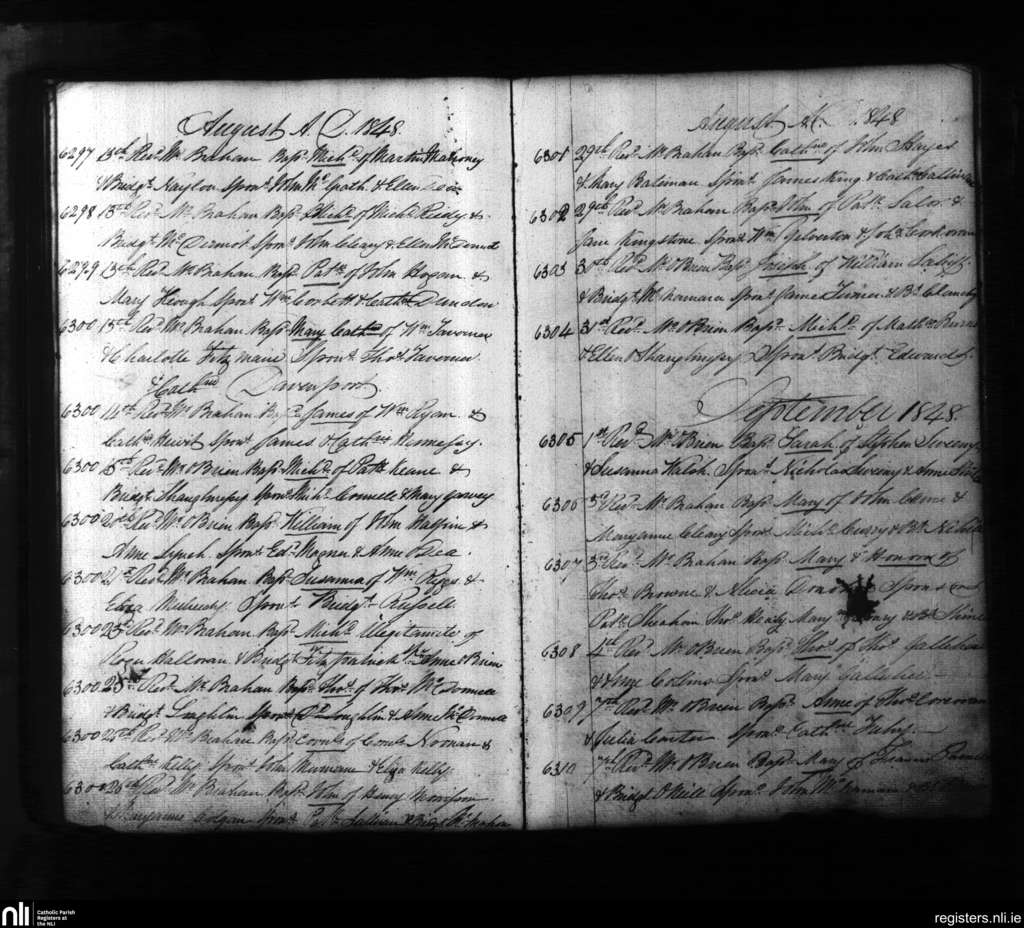 August A. D. 1848
6297 13th Revd Mr Brahan Bapd Michl of Martin Mahoney
& Bridgt Naylon Sponr John McGrath & Ellen
6298 13th Revd Mr Brahan Bapd Michl of Michl Reidy &
Bridgt McDermot Sponr John Cleary & Ellen McDermot
6299 13th Revd Mr Brahan Bapd Patk of John Hogan &
Mary Keough Sponr Wm Corbett & Cathne Dundon
6300 13th Revd Mr Brahan Bapd Mary Cathne of Wm Taverner
& Charlotte Fitzmaurice Sponr Thos Taverner
& Cathne Davenport
6300 14th Revd Mr Brahan Bapd James of Wm Ryan &
Cathne Sponr James & Cathne Hennessy
6300 15th Revd Mr O'Brien Bapd Michl of Patk Keane &
Bridgt Shaughnessy Sponr Michl Connell & Mary Garvey
6300 20th Revd Mr O'Brien Bapd William of John &
Anne Lynch Sponr Edd Magner & Anne O'Dea
6300 21st Revd Mr Brahan Bapd Susanna of Wm Riggs &
Eliza Sponr Bridgt Russell
6300 23rd Revd Mr Brahan Bapd Michl Illegitamite of
Roger Halloran & Bridgt Fitzpatrick Sr Anne O'Brien
6300 25th Revd Mr Brahan Bapd Thos of Thos McDonnell
& Bridgt Loughlin Sponr Loughlin & Anne McDonnell
6300 26th Revd Mr Brahan Bapd of Noonan &
Cathne Kelly Sponr John & Eliza Kelly
6300 26th Revd Mr Brahan Bapd John of Henry Morrison
& Colgan Sponr Patk Sullivan & Bridgt McMahon
August A. D. 1848
6301 29th Revd Mr Brahan Bapd Cathne of John Hayes
& Mary Bateman Sponr James King & Cath
6302 29th Revd Mr Brahan Bapd John of Patk Lalor &
Jane Kingstone Sponr Wm Yelverton &
6303 30th Revd Mr O'Brien Bapd Joseph of William
& Bridgt McNamara Sponr James Turner & Bt Clanchy
6304 31st Revd Mr O'Brien Bapd Michl of Matthw Burne
& Ellen O'Shaughnessy Sponr Bridgt Edwards
September 1848
6305 1st Revd Mr O'Brien Bapd Sarah of Stephen Sweeny
& Susanna Walsh Sponr Nicholas Sweeny & Anne
6306 3d Revd Mr Brahan Bapd Mary of John &
Maryanne Cleary Sponr Michl &
6307 3rd Revd Mr Brahan Bapd Mary & Honora of
Thos Browne & Alicia Sponr
Patk Sheahan Thos Healy Mary & Bt
6308 4th Revd Mr O'Brien Bapd Thos of Thos
& Anne Collins Sponr Mary Gallagher
6309 7th Revd Mr O'Brien Bapd Anne of Thos Corcoran
& Julia Carter Sponr Cathne Fahy
6310 7th Revd Mr O'Brien Bapd Mary of
& Bridgt O'Neill Sponr John McNamara &
nli Catholic Parish
Registers at
the NLI
registers.nli.ie